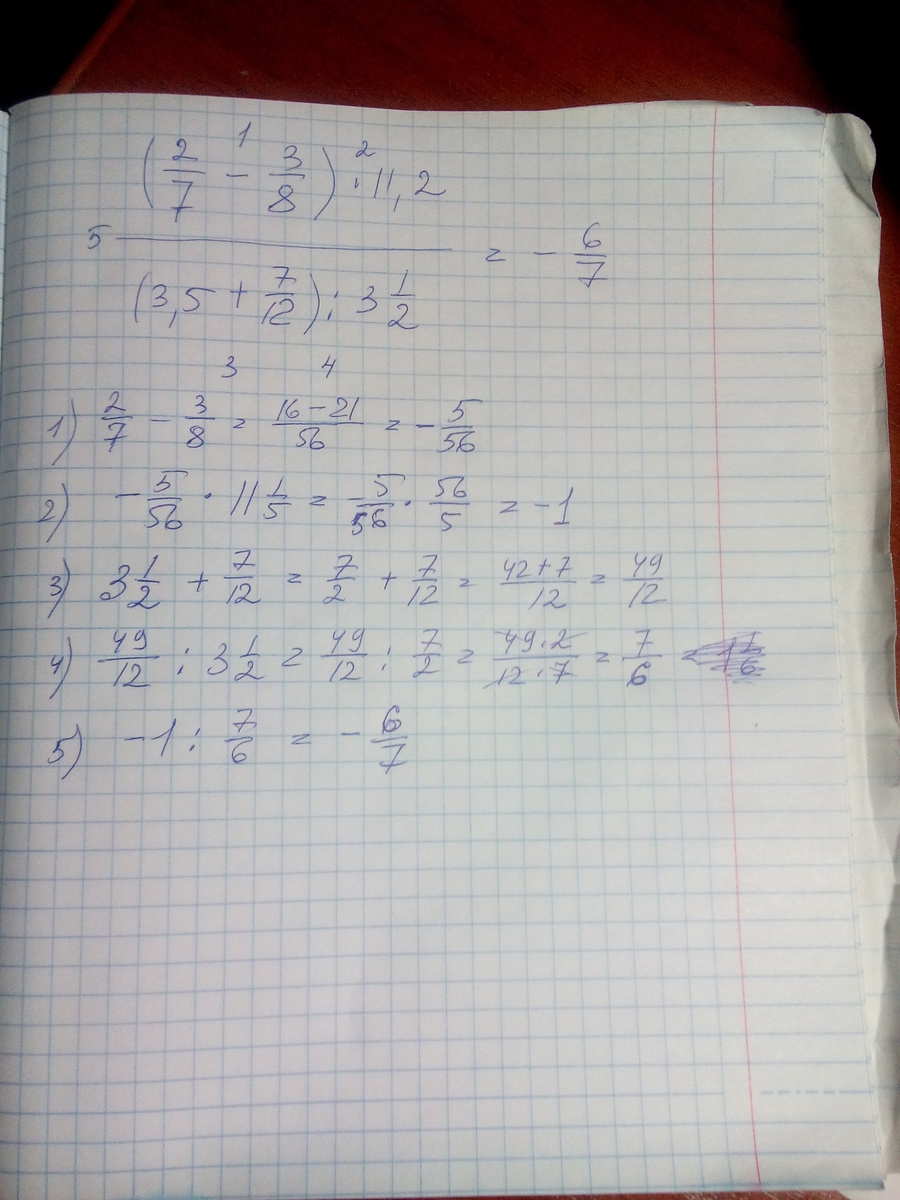 1 2
(2/7 - 3/8) · 11,2
5 ――― = - 6/7
(3,5 + 7/12) : 3 1/2
3 4
1) 2/7 - 3/8 = (16-21)/56 = - 5/56
2) - 5/56 · 11 1/5 = -5/56 · 56/5 = -1
3) 3 1/2 + 7/12 = 7/2 + 7/12 = (42+7)/12 = 49/12
4) 49/12 : 3 1/2 = 49/12 : 7/2 = (49·2)/(12·7) = 7/6
5) -1 : 7/6 = - 6/7